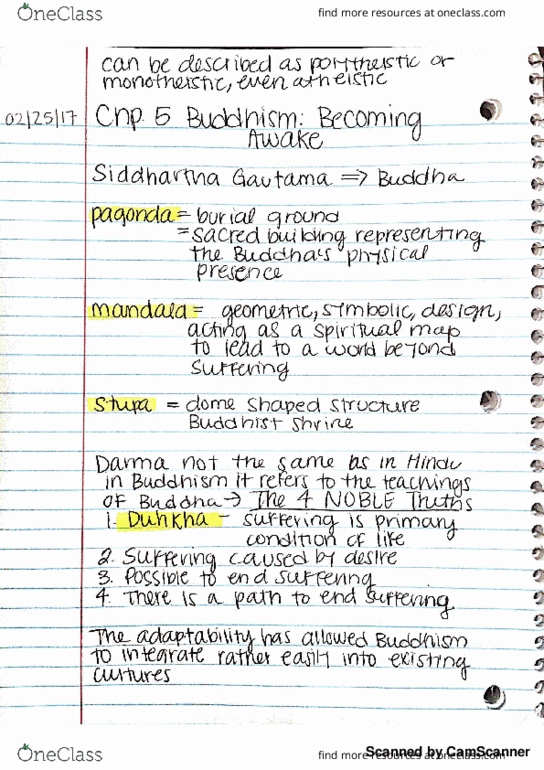 OneClass
find more resources at oneclass.com
can be described as polytheistic or
monotheistic, even atheistic
02/25/17 Chp 5 Buddhism: Becoming
Awake
Siddhartha Gautama => Buddha
pagonda = burial ground
= sacred building representing
the Buddha's physical
presence
mandala = geometric, symbolic, design,
acting as a spiritual map
to lead to a world beyond
suffering
Stupa = dome shaped structure
Buddhist shrine
Darma not the same as in Hindu
in Buddhism it refers to the teachings
of Buddha → The 4 NOBLE Truths
1. Duhkha - suffering is primary
condition of life
2. Suffering caused by desire
3. Possible to end suffering
4. There is a path to end suffering
The adaptability has allowed Buddhism
to integrate rather easily into existing
cultures
OneClass
find more resources at oneclass.com
Scanned by CamScanner